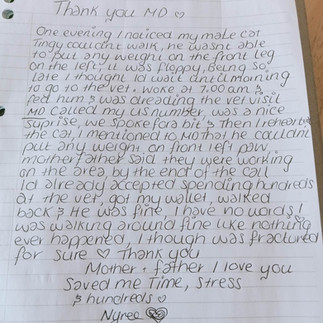 Thank you MD ♡
One evening I noticed my male cat
Tingy couldnt walk, he wasnt able
to put any weight on the front leg
on the left, it was floppy, Being so
late I thought Id wait until morning
to go to the vet. Woke at 7.00am &
fed him & was dreading the vet visit
MD called my US number, was a nice
suprise, we spoke for a bit & Then
the cat, I mentioned to MD that he couldnt
put any weight on front left paw,
mother father said they were working
on the area, by the end of the call
Id already accepted spending hundreds
at the vet, got my wallet, walked
back & He was fine, I have no words, I
was walking around fine like nothing
ever happened, I though was fractured
for sure ♡ Thank you
Mother + father I love you
Saved me Time, stress
& hundreds ♡
Nyree